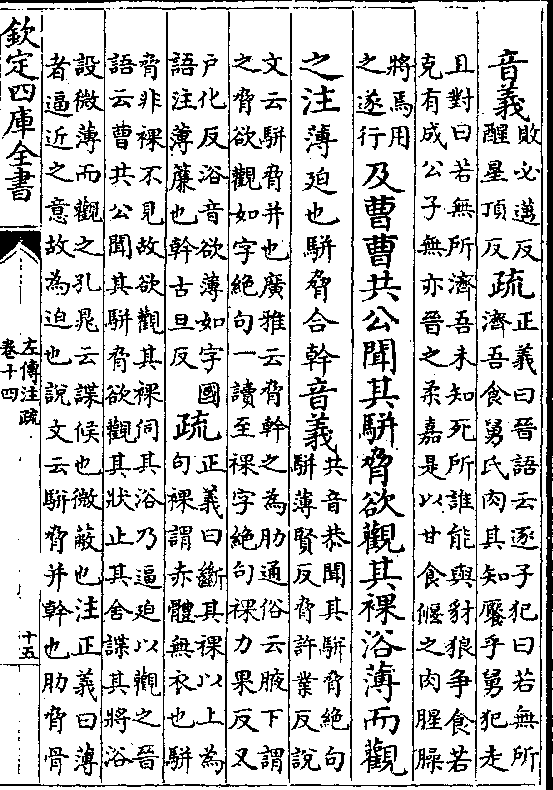 音義敗必邁反
醒星頂反
疏正義曰晉語云逐子犯曰若無所
濟吾食舅氏肉其知饜乎舅犯走
且對曰若無所濟吾未知死所誰能與豺狼争食若
克有成公子無亦晉之柔嘉是以甘食偃之肉腥臊
將焉用
之遂行
及曹曹共公聞其駢脅欲觀其裸浴薄而觀
之注薄廹也駢脅合幹音義共音恭聞其駢脅絶句
駢薄賢反脅許業反說
文云駢脅并也廣雅云脅幹之為肋通俗云腋下謂
之脅欲觀如字絶句一讀至裸字絶句裸力果反又
户化反浴音欲薄如字國
語注薄簾也幹古旦反
疏正義曰斷其裸以上為
句裸謂赤體無衣也駢
脅非裸不見故欲觀其裸伺其浴乃逼廹以觀之晉
語云曹共公聞其駢脅欲觀其狀止其舍諜其將浴
設微薄而觀之孔晁云諜候也微蔽也注正義曰薄
者逼近之意故為廹也說文云駢脅并幹也肋脅骨
欽定四庫全書
左傳注疏
卷十四
十五